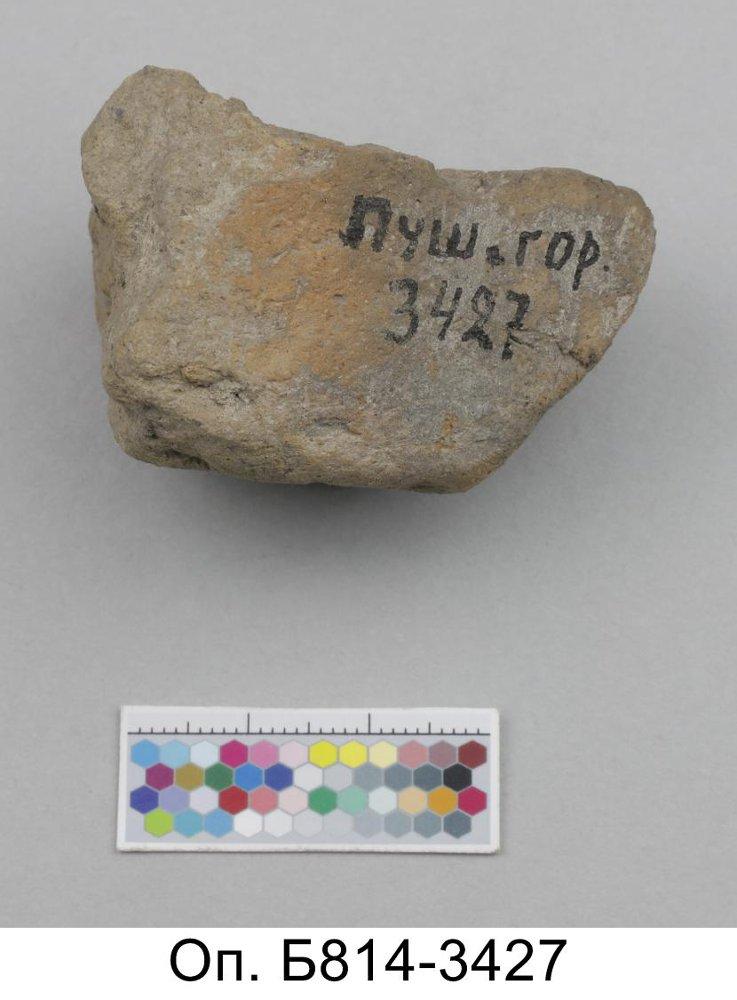 Пуш. гор.
3427
Оп. Б814-3427